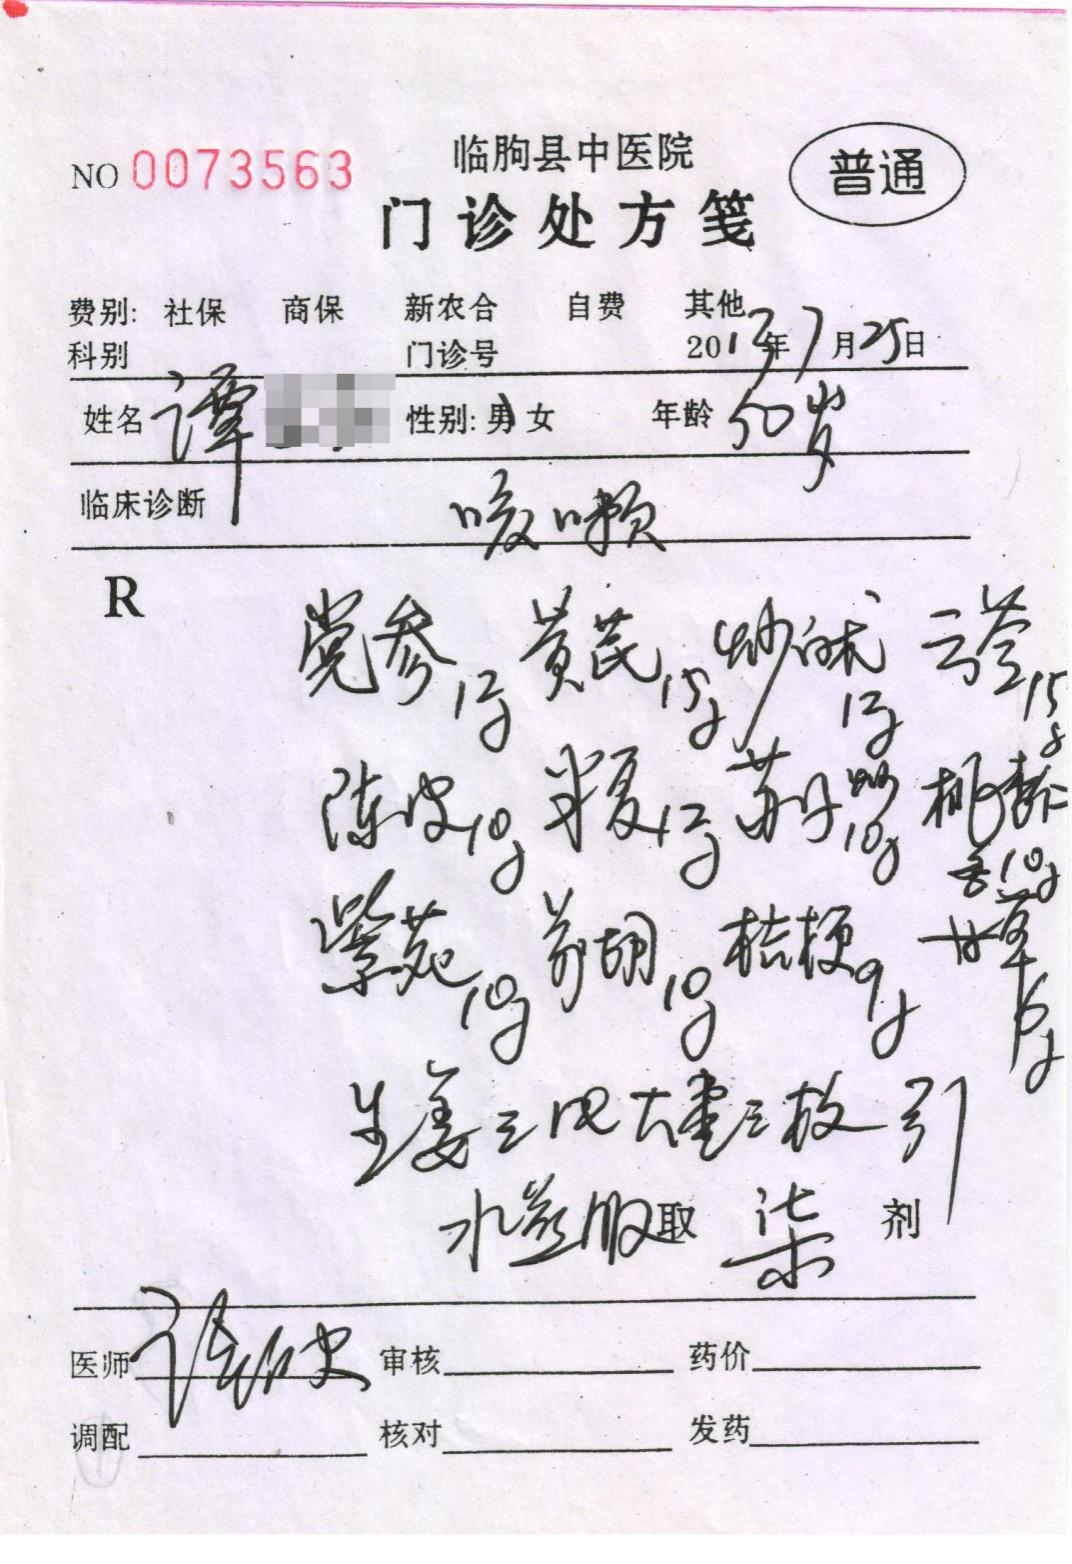 NO 0073563
临朐县中医院
普通
门诊处方笺
费别: 社保 商保 新农合 自费 其他
科别 门诊号 2013年7月25日
姓名 谭 性别: 男 女 年龄 50岁
临床诊断 咳嗽
R
党参12g 黄芪15g 炒白术12g 云苓15g
陈皮10g 半夏12g 苏子炒10g 桃杏仁各10g
紫菀10g 前胡10g 桔梗9g 甘草6g
生姜三片 大枣三枚 引
水煎服 取 柒 剂
医师 审核 药价
调配 核对 发药